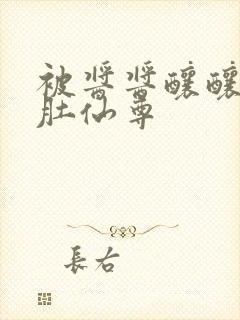 被酱酱酿酿
肚仙尊
長右